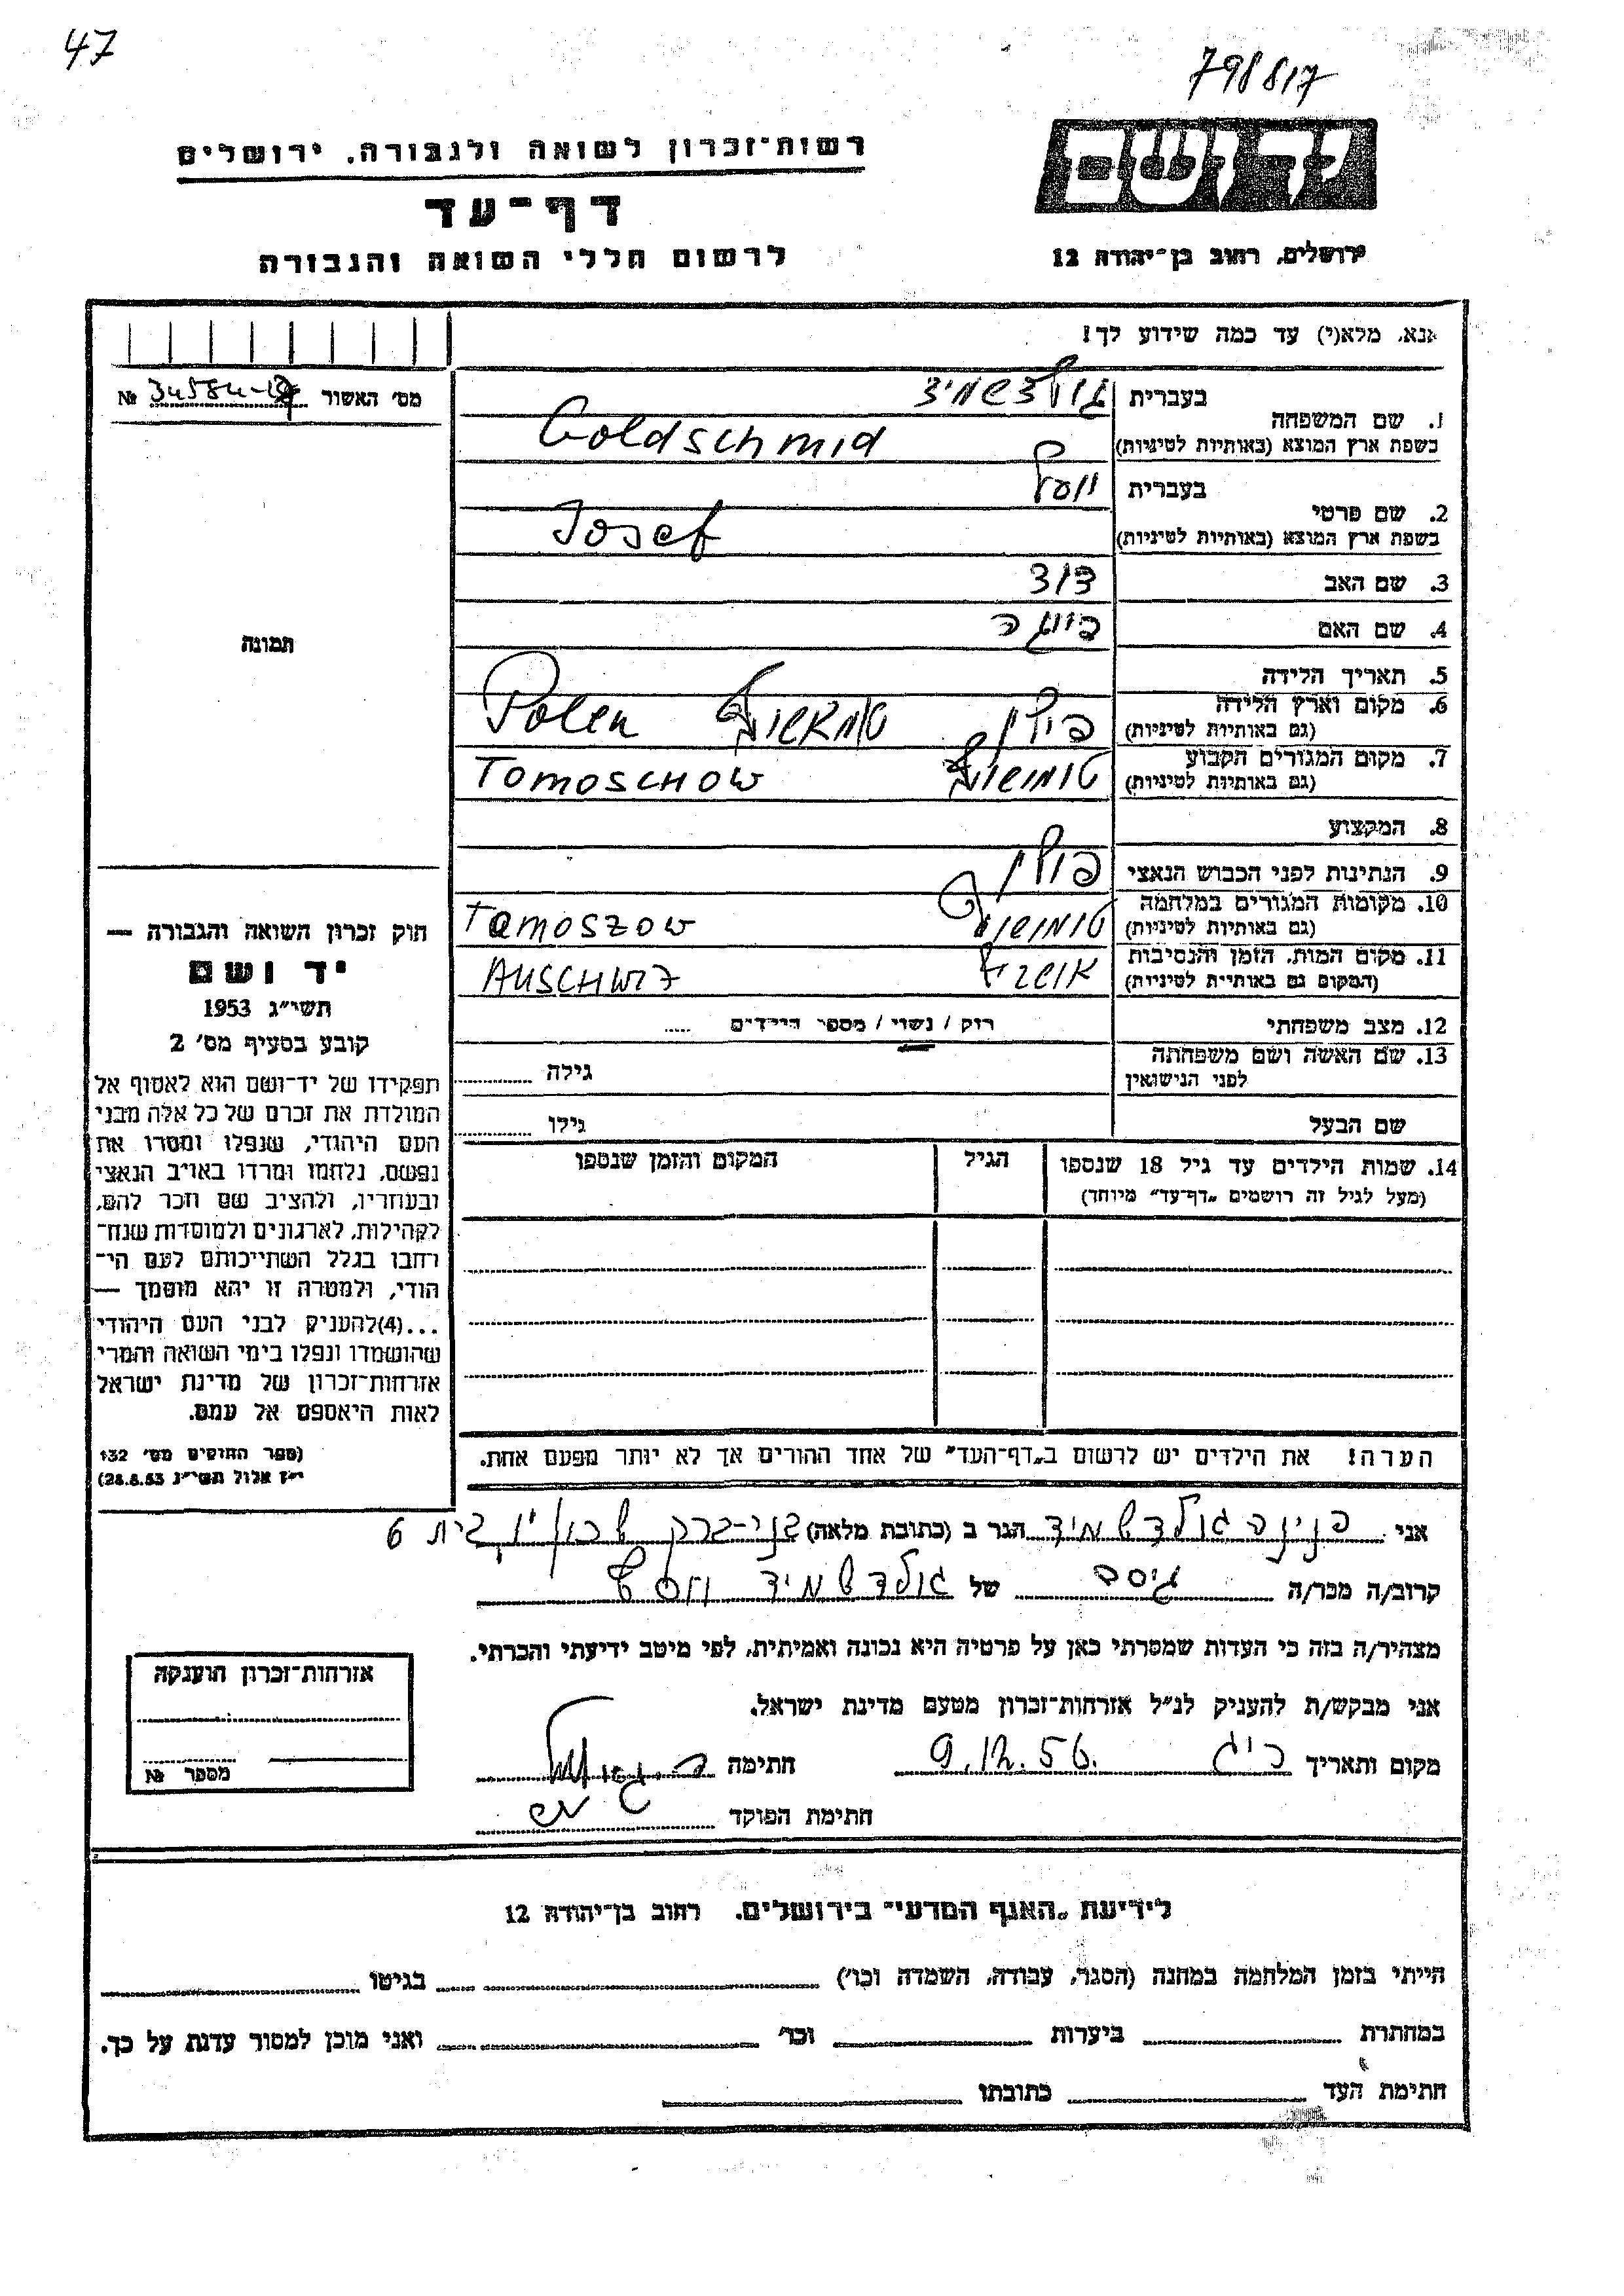 47
798817
יד ושם
רשות־זכרון לשואה ולגבורה, ירושלים
דף־עד
לרשום חללי השואה והגבורה
ירושלים, רחוב בן־יהודה 12
אנא, מלא(י) עד כמה שידוע לך!
מס׳ האשור №
1. שם המשפחה בעברית גולדשמיד
בשפת ארץ המוצא (באותיות לטיניות) Goldschmid
2. שם פרטי בעברית יוסף
בשפת ארץ המוצא (באותיות לטיניות) Josef
3. שם האב דוד
4. שם האם
5. תאריך הלידה
6. מקום וארץ הלידה פולין טומאשוב Polen
(גם באותיות לטיניות)
7. מקום המגורים הקבוע טומושוב TOMOSCHOW
(גם באותיות לטיניות)
8. המקצוע
9. הנתינות לפני הכבוש הנאצי פולין
10. מקומות המגורים במלחמה טומושוב TOMOSZOW
(גם באותיות לטיניות)
11. מקום המות, הזמן והנסיבות AUSCHWIZ
(המקום גם באותיות לטיניות)
12. מצב משפחתי רוק / נשוי / מספר הילדים .....
13. שם האשה ושם משפחתה גילה
לפני הנישואין
שם הבעל גילו
14. שמות הילדים עד גיל 18 שנספו הגיל המקום והזמן שנספו
(מעל לגיל זה רושמים „דף־עד״ מיוחד)
הערה! את הילדים יש לרשום ב„דף־העד״ של אחד ההורים אך לא יותר מפעם אחת.
תמונה
חוק זכרון השואה והגבורה —
יד ושם
תשי״ג 1953
קובע בסעיף מס׳ 2
תפקידו של יד־ושם הוא לאסוף אל
המולדת את זכרם של כל אלה מבני
העם היהודי, שנפלו ומסרו את
נפשם, נלחמו ומרדו באויב הנאצי
ובעוזריו, ולהציב שם וזכר להם,
לקהילות, לארגונים ולמוסדות שנח־
רחבו בגלל השתייכותם לעם הי־
הודי, ולמטרה זו יהא מוסמך —
...(4)להעניק לבני העם היהודי
שהושמדו ונפלו בימי השואה והמרי
אזרחות־זכרון של מדינת ישראל
לאות היאספם אל עמם.
(ספר החוקים מס׳ 132
י״ז אלול תשי״ג 28.8.53)
אני פנינה גולדשמיד הגר ב (כתובת מלאה) בני-ברק שכון בית 6
קרוב/ה מכר/ה גיסה של גולדשמיד יוסף
מצהיר/ה בזה כי העדות שמסרתי כאן על פרטיה היא נכונה ואמיתית, לפי מיטב ידיעתי והכרתי.
אני מבקש/ת להעניק לנ״ל אזרחות־זכרון מטעם מדינת ישראל.
מקום ותאריך 9.12.56. חתימה
חתימת הפוקד
אזרחות־זכרון הוענקה
מספר №
לידיעת „האגף המדעי״ בירושלים, רחוב בן־יהודה 12
הייתי בזמן המלחמה במחנה (הסגר, עבודה, השמדה וכו׳) בגיטו
במחתרת ביערות וכו׳ ואני מוכן למסור עדות על כך.
חתימת העד כתובתו